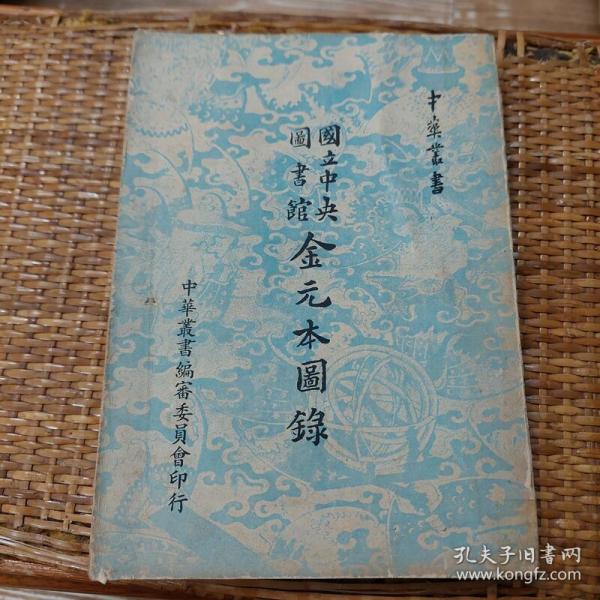 中華叢書
國立中央
圖書館
金元本圖錄
中華叢書編審委員會印行
孔夫子旧书网
www.kongfz.com